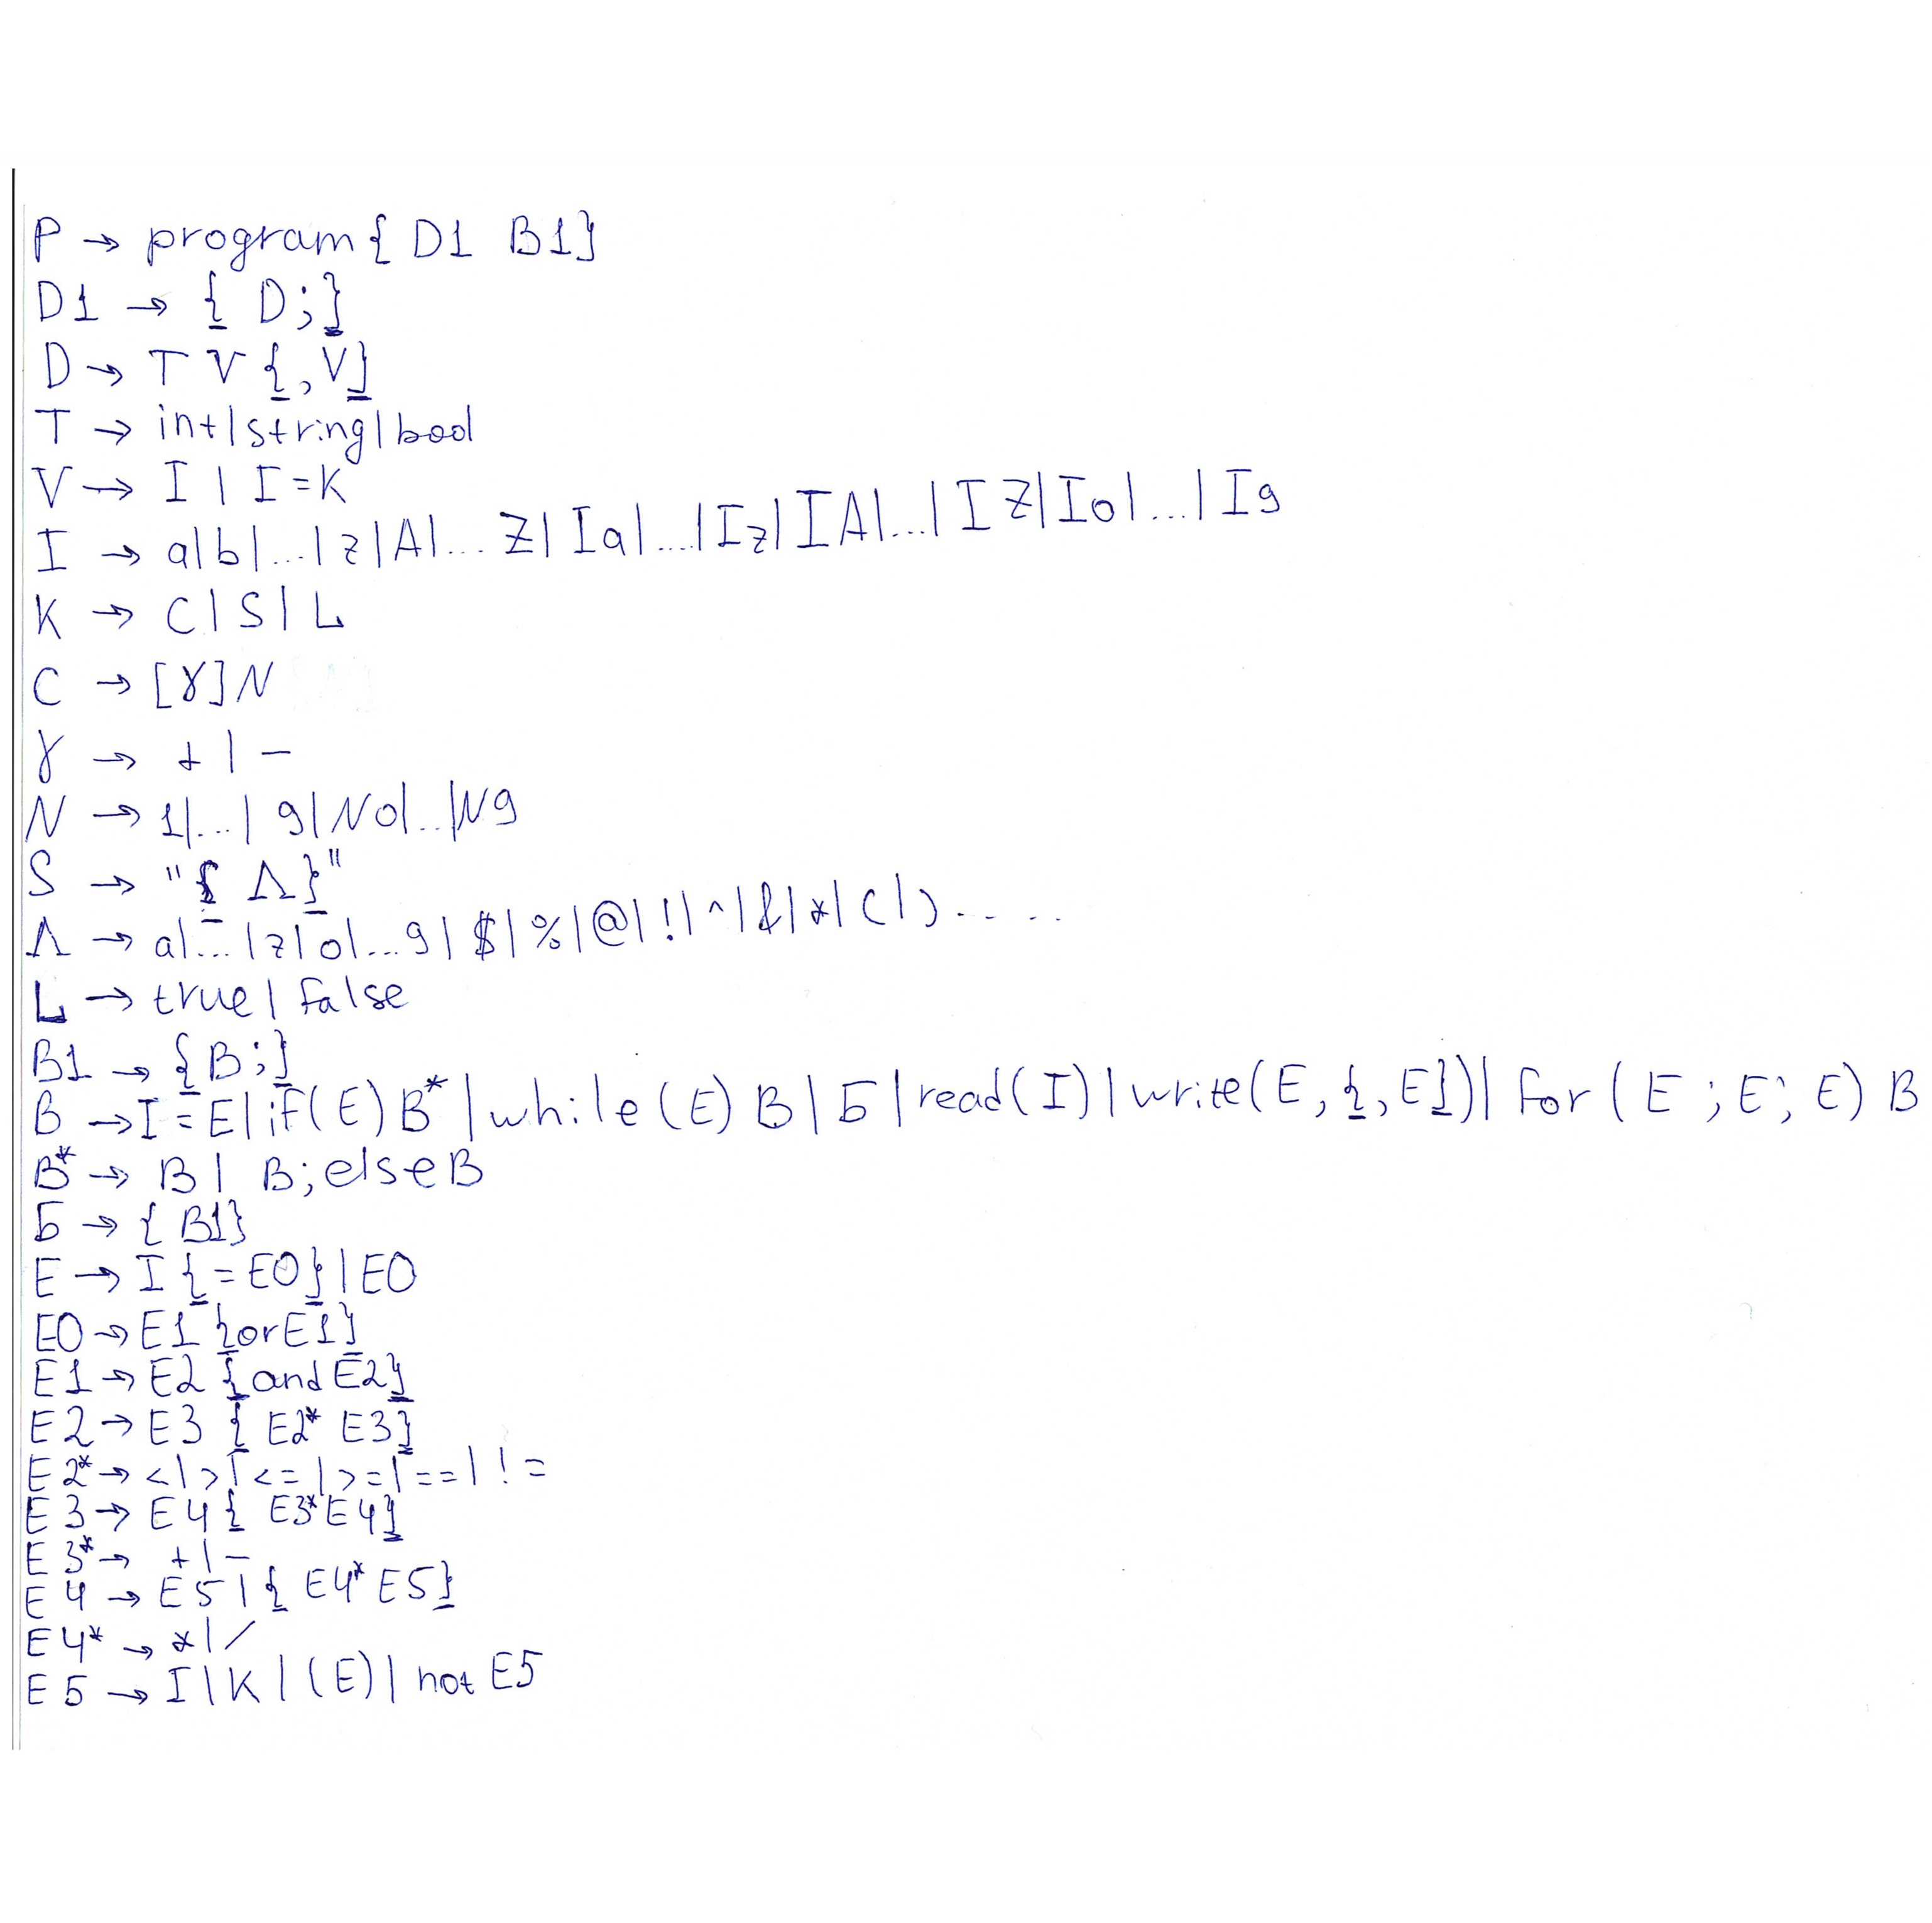 P → program{ D1 B1}
D1 → { D;}
D → T V {,V}
T → int|string|bool
V → I | I=K
I → a|b|...|z|A|... Z| Ia|...|Iz|IA|...|IZ|I0|...|I9
K → C|S|L
C → [γ]N
γ → +|-
N → 1|...|9|N0|...|N9
S → "{ Λ}"
Λ → a|...|z|0|...9|$|%|@|!|^|&|*|(|).....
L → true|false
B1 → {B;}
B → I=E|if(E)B*|while(E)B|Б|read(I)|write(E,{,E})|for(E;E;E)B
B* → B| B;elseB
Б → { B1}
E → I{=E0}|E0
E0 → E1{orE1}
E1 → E2{andE2}
E2 → E3{ E2* E3}
E2* → <|>|<=|>=|==|!=
E3 → E4{ E3*E4}
E3* → +|-
E4 → E5|{ E4*E5}
E4* → *|/
E5 → I|K|(E)|not E5